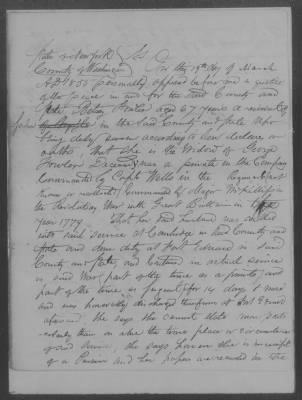 State of New York } SS
County of Washington } On this 19th day of March
AD 1855 personally appeared before me a Justice
of the peace in and for the said County and
State Betsey Fowler aged 87 years a resident of
in the said County and State who
being duly sworn according to law declares on
oath that she is the Widow of George
Fowler Deceased was a private in the Company
Commanded by Capt Wells in the Regiment
Commanded by Major
the Revolutionary War with Great Britain in the
year 1779 That her said husband was
into said service at Cambridge in said County and
State and done duty at Fort Edward in said
County and State, and Continued in actual service
in said War part of the time as a private, and
part of the time as for 14 days &
and was honorably discharged therefrom at Fort Edward
aforesaid She says she cannot state more
than as above the time place or circumstances
of said service, she says however she is in receipt
of a Pension and her papers are recorded in the